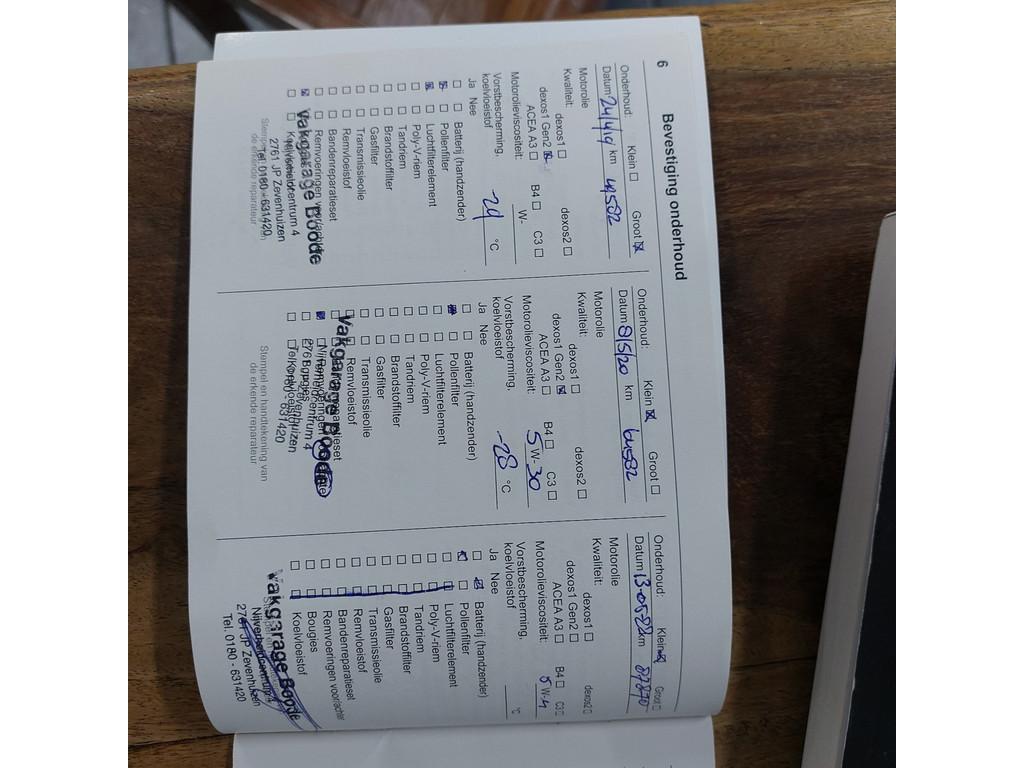 6
Bevestiging onderhoud
Onderhoud: Klein ☐ Groot ☒
Datum km
Motorolie
Kwaliteit: dexos1 ☐ dexos2 ☐
dexos1 Gen2 ☒ B4 ☐ C3 ☐
ACEA A3 ☐
Motorolieviscositeit: W-
Vorstbescherming,
koelvloeistof -24 °C
Ja Nee
☐ ☐ Batterij (handzender)
☒ ☐ Pollenfilter
☒ ☐ Luchtfilterelement
☐ ☐ Poly-V-riem
☐ ☐ Tandriem
☐ ☐ Brandstoffilter
☐ ☐ Gasfilter
☐ ☐ Transmissieolie
☐ ☐ Remvloeistof
☐ ☐ Bandenreparatieset
☐ ☐ Remvoeringen
Vakgarage Boode
Nijverheidcentrum 4
2761 JP Zevenhuizen
Tel. 0180 - 631420
de erkende reparateur
Onderhoud: Klein ☒ Groot ☐
Datum 8/5/20 km 64582
Motorolie
Kwaliteit: dexos1 ☐ dexos2 ☐
dexos1 Gen2 ☒ B4 ☐ C3 ☐
ACEA A3 ☐
Motorolieviscositeit: 5 W-30
Vorstbescherming,
koelvloeistof -28 °C
Ja Nee
☐ ☐ Batterij (handzender)
☒ ☐ Pollenfilter
☐ ☐ Luchtfilterelement
☐ ☐ Poly-V-riem
☐ ☐ Tandriem
☐ ☐ Brandstoffilter
☐ ☐ Gasfilter
☐ ☐ Transmissieolie
☐ ☐ Remvloeistof
Vakgarage Boode
Bougies
Zevenhuizen
631420
Stempel en handtekening van
de erkende reparateur
Onderhoud: Klein ☒ Groot ☐
Datum 13-05-22 km 87870
Motorolie
Kwaliteit: dexos1 ☐ dexos2 ☐
dexos1 Gen2 ☐ B4 ☐ C3 ☐
ACEA A3 ☐
Motorolieviscositeit: 5 W-4
Vorstbescherming,
koelvloeistof °C
Ja Nee
☐ ☒ Batterij (handzender)
☒ ☐ Pollenfilter
☐ ☐ Luchtfilterelement
☐ ☐ Poly-V-riem
☐ ☐ Tandriem
☐ ☐ Brandstoffilter
☐ ☐ Gasfilter
☐ ☐ Transmissieolie
☐ ☐ Remvloeistof
☐ ☐ Bandenreparatieset
☐ ☐ Remvoeringen voor/achter
☐ ☐ Bougies
☐ ☐ Koelvloeistof
Vakgarage Boode
Nijverheidcentrum 4
2761 JP Zevenhuizen
Tel. 0180 - 631420